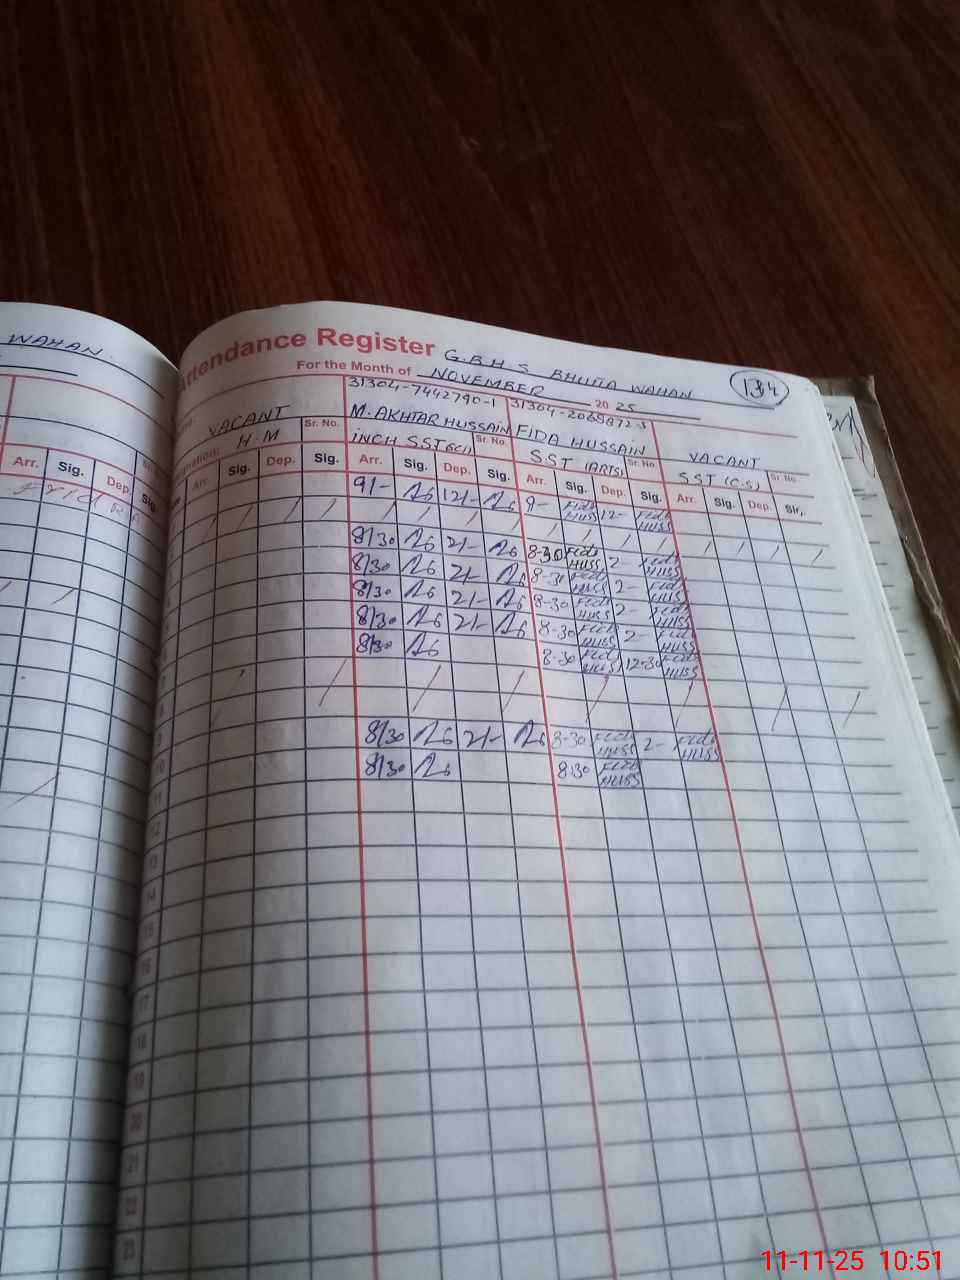 WAHAN.
Attendance Register G.B.H.S BHUTTA WAHAN 134
For the Month of NOVEMBER 2025
31304-7442790-1
VACANT M. AKHTAR HUSSAIN FIDA HUSSAIN VACANT
H.M Sr. No. INCH SST Sr. No. SST (ARTS) Sr. No. SST (C.S) Sr. No.
Arr. Sig. Dep. Sig. Arr. Sig. Dep. Sig. Arr. Sig. Dep. Sig. Arr. Sig. Dep. Sig. Arr. Sig. Dep. Sir,
9/- 12/- 9- FIDA HUSS 12- FIDA HUSS
8/30 2/- 8-30 FIDA HUSS 2- FIDA HUSS
8/30 2/- 8-30 FIDA HUSS 2- FIDA HUSS
8/30 2/- 8-30 FIDA HUSS 2- FIDA HUSS
8/30 2/- 8-30 FIDA HUSS 2- FIDA HUSS
8/30 8-30 FIDA HUSS 12-30 FIDA HUSS
8
9 8/30 2/- 8-30 FIDA HUSS 2- FIDA HUSS
10 8/30 8-30 FIDA HUSS
11
12
13
14
15
16
17
18
19
20
21
22
23
11-11-25 10:51